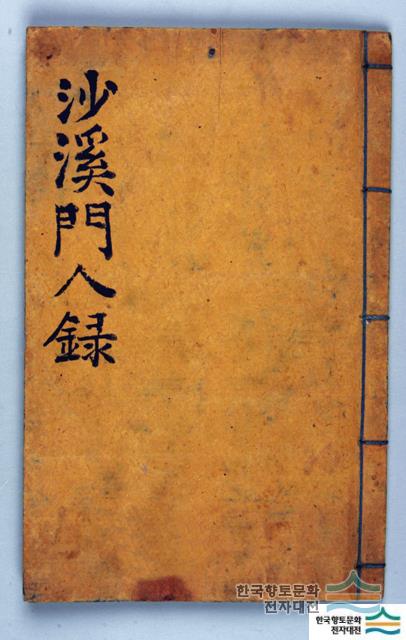 沙溪門人録
한국향토문화
전자대전
한국향토문화
전자대전